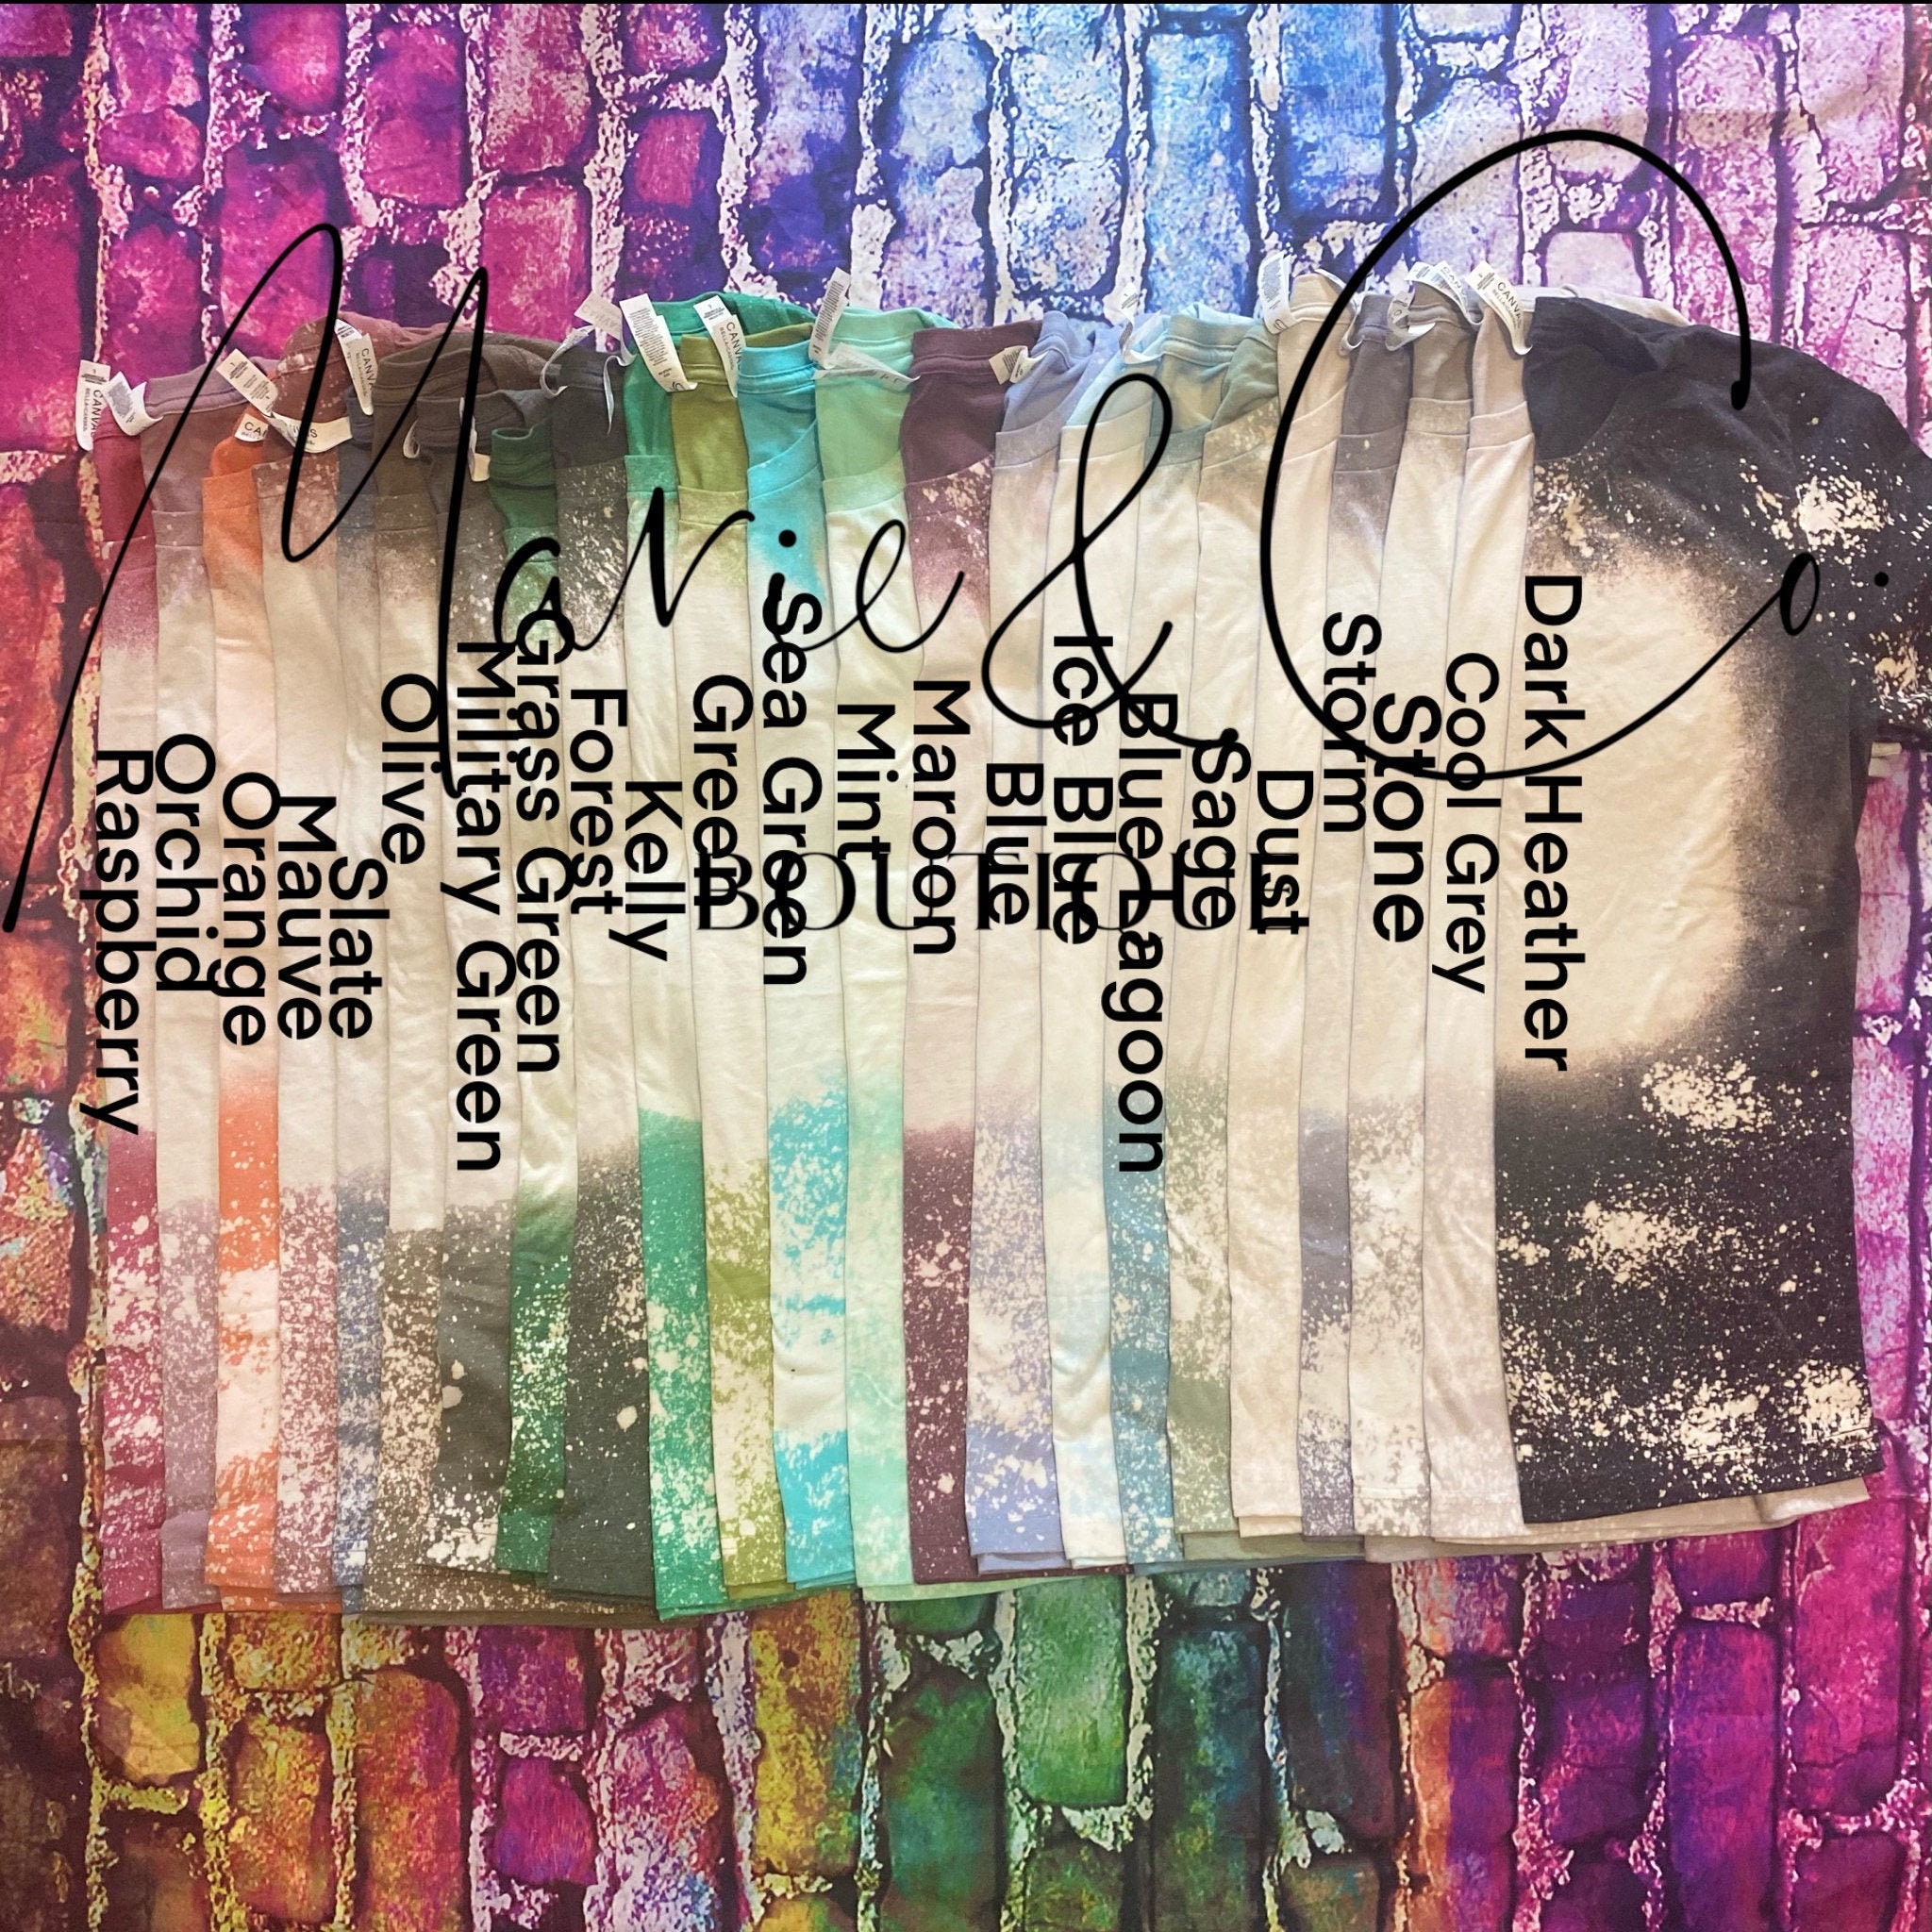 Marie & Co.
BOUTIQUE
Raspberry
Orchid
Orange
Mauve
Slate
Olive
Military Green
Grass Green
Forest
Kelly
Green
Sea Green
Mint
Maroon
Blue
Ice Blue
Blue Lagoon
Sage
Dust
Storm
Stone
Cool Grey
Dark Heather
CANVAS